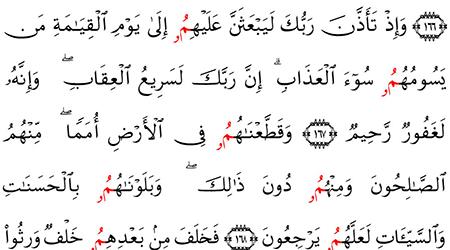 ﴿١٦٦﴾ وَإِذْ تَأَذَّنَ رَبُّكَ لَيَبْعَثَنَّ عَلَيْهِمُۥ إِلَىٰ يَوْمِ ٱلْقِيَٰمَةِ مَن
يَسُومُهُمُۥ سُوٓءَ ٱلْعَذَابِ ۗ إِنَّ رَبَّكَ لَسَرِيعُ ٱلْعِقَابِ ۖ وَإِنَّهُۥ
لَغَفُورٌ رَّحِيمٌ ﴿١٦٧﴾ وَقَطَّعْنَٰهُمُۥ فِى ٱلْأَرْضِ أُمَمًا ۖ مِّنْهُمُ
ٱلصَّٰلِحُونَ وَمِنْهُمُۥ دُونَ ذَٰلِكَ ۖ وَبَلَوْنَٰهُمُۥ بِٱلْحَسَنَٰتِ
وَٱلسَّيِّـَٔاتِ لَعَلَّهُمُۥ يَرْجِعُونَ ﴿١٦٨﴾ فَخَلَفَ مِنۢ بَعْدِهِمُۥ خَلْفٌ وَرِثُوا۟